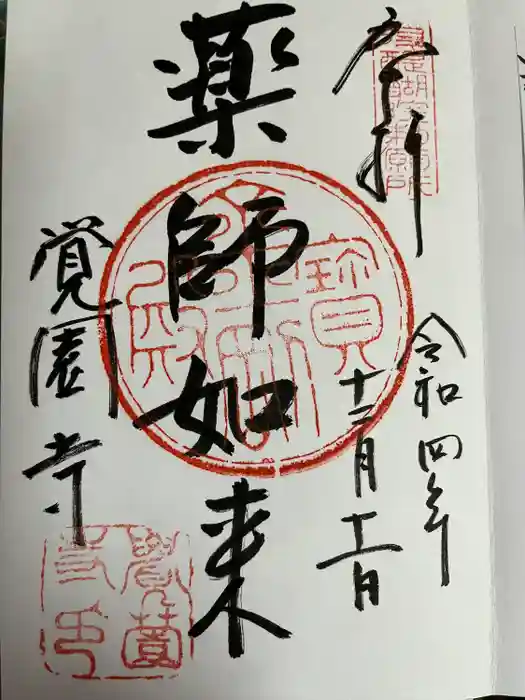 奉拝
令和四年
十二月十一日
薬師如来
覚園寺
寶
覺園
寺印